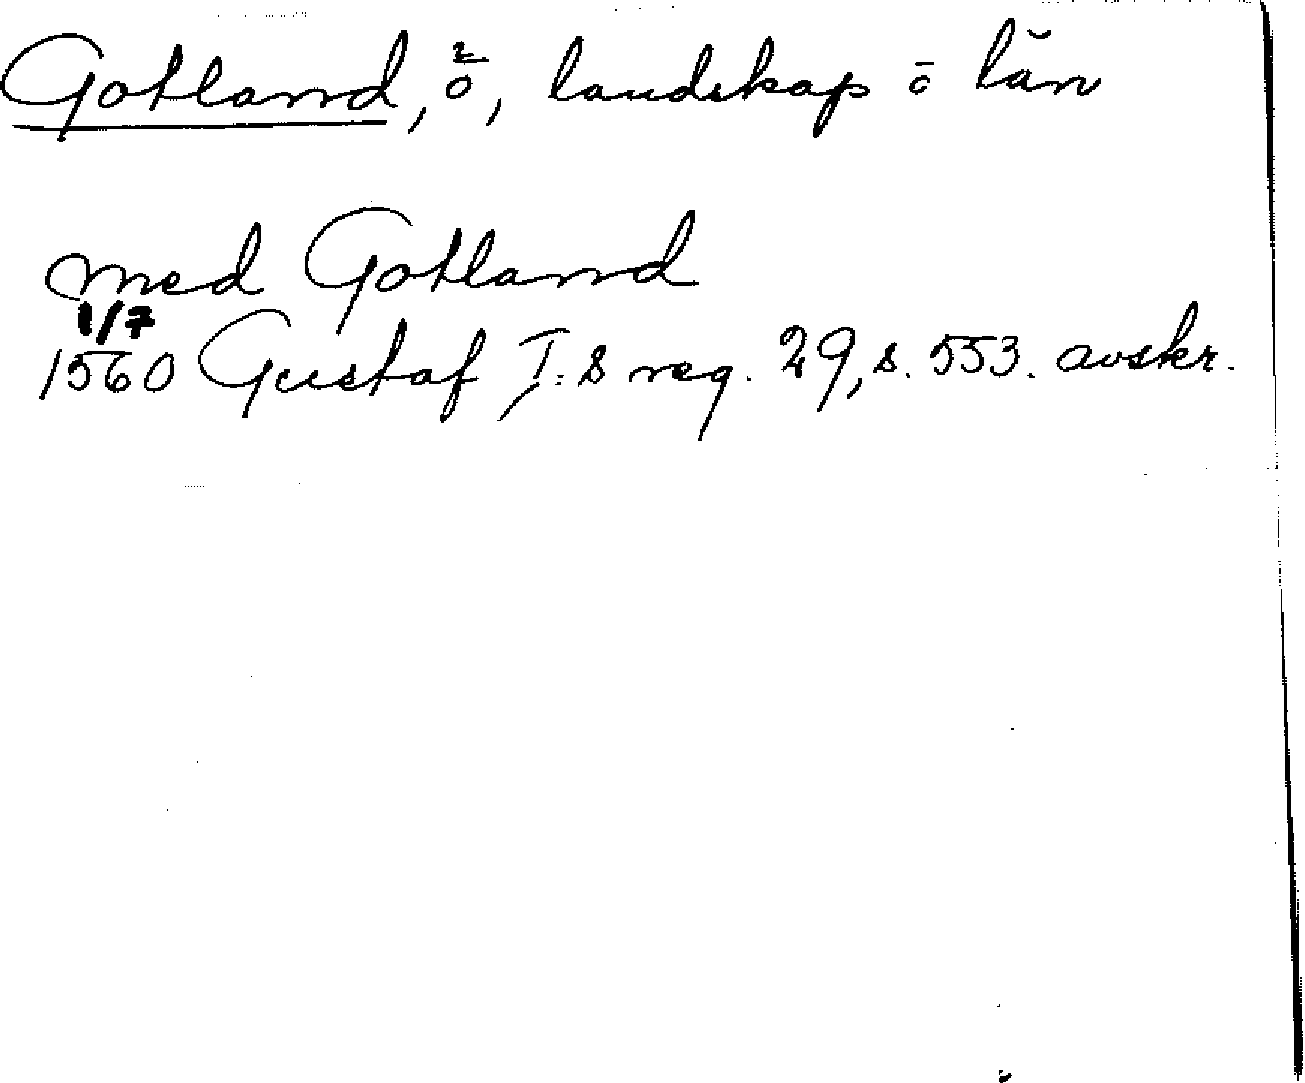 Gotland, ö, landskap o län
med Gotland
1/7
1560 Gustaf I:s reg. 29, s. 553. avskr.